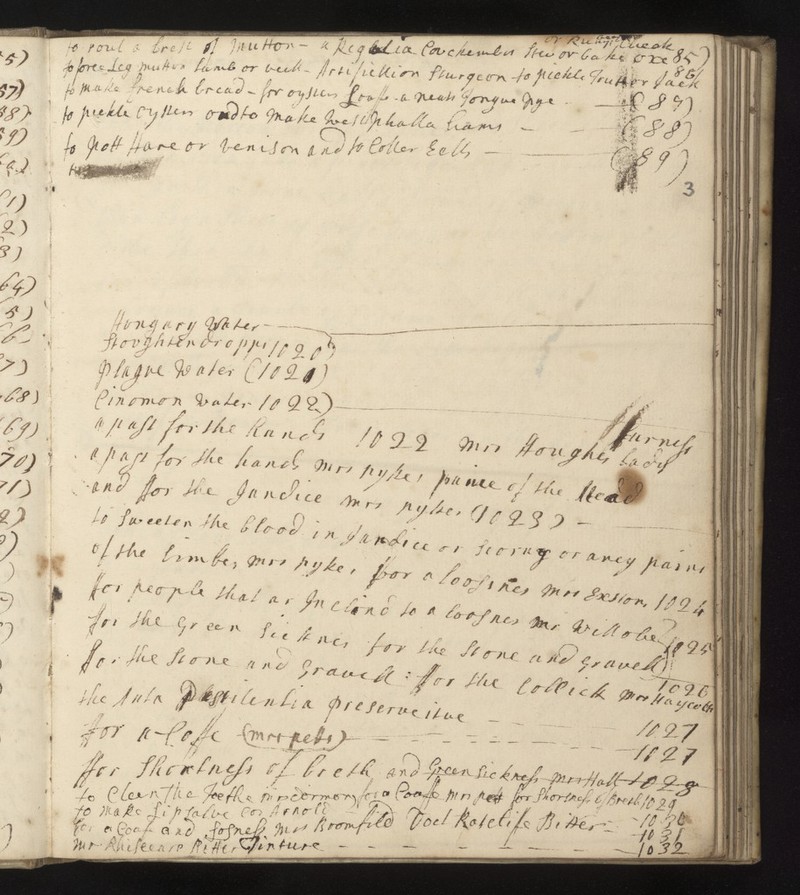 5)
57)
58)
59)
61)
2)
3)
64)
5)
6)
7)
68)
69)
70)
71)
2)
or Rump Cheak
to roul a brest of mutton - a Regalia Cowchember Stew or bake oxe 85)
to force Leg mutton Lamb or veell - Artifiction Sturgeon - to pickle Trutt or Jack 86)
to make french bread - for oysters Loafs - a neats Tongue Pye - (87)
to pickle oysters and to make westphalla hams - (88)
to pott Hare or venison and to Coller Eells - (89)
3
Hongary Water
Stoughten dropps 1020)
plague water (1021)
Cinomon water 1022)
a past for the hands 1022 mrs Houghes Lady
furness
a past for the hands mrs pykes paine of the Head
and for the Jandice mrs pykes (1023) -
to sweeten the blood in Jandice or scorvy or aney pains
of the limbes mrs pykes for a loosnes mrs Sextons 1024
for people that ar Inclind to a loosnes mr Willobe 1025
for the Green Sicknes for the Stone and gravell
for the Stone and gravell : for the Collick mrs Haycotts 1026
the Anta Pestilentia preserveitive - 1027
for a Coffe (mrs petts) - 1027
for Shortness of breth and Green Sickness mrs Hall 1028
to Clean the Teethe mrs dormon for a Coaffe mrs pett for Shortness of Breth 1029
to make Lip salve Cos Arnold - 1030
for a Coaf and Sofness mrs Bromfild Doct Ratclife Bitter - 1031
mr Bitter Tinture - 1032